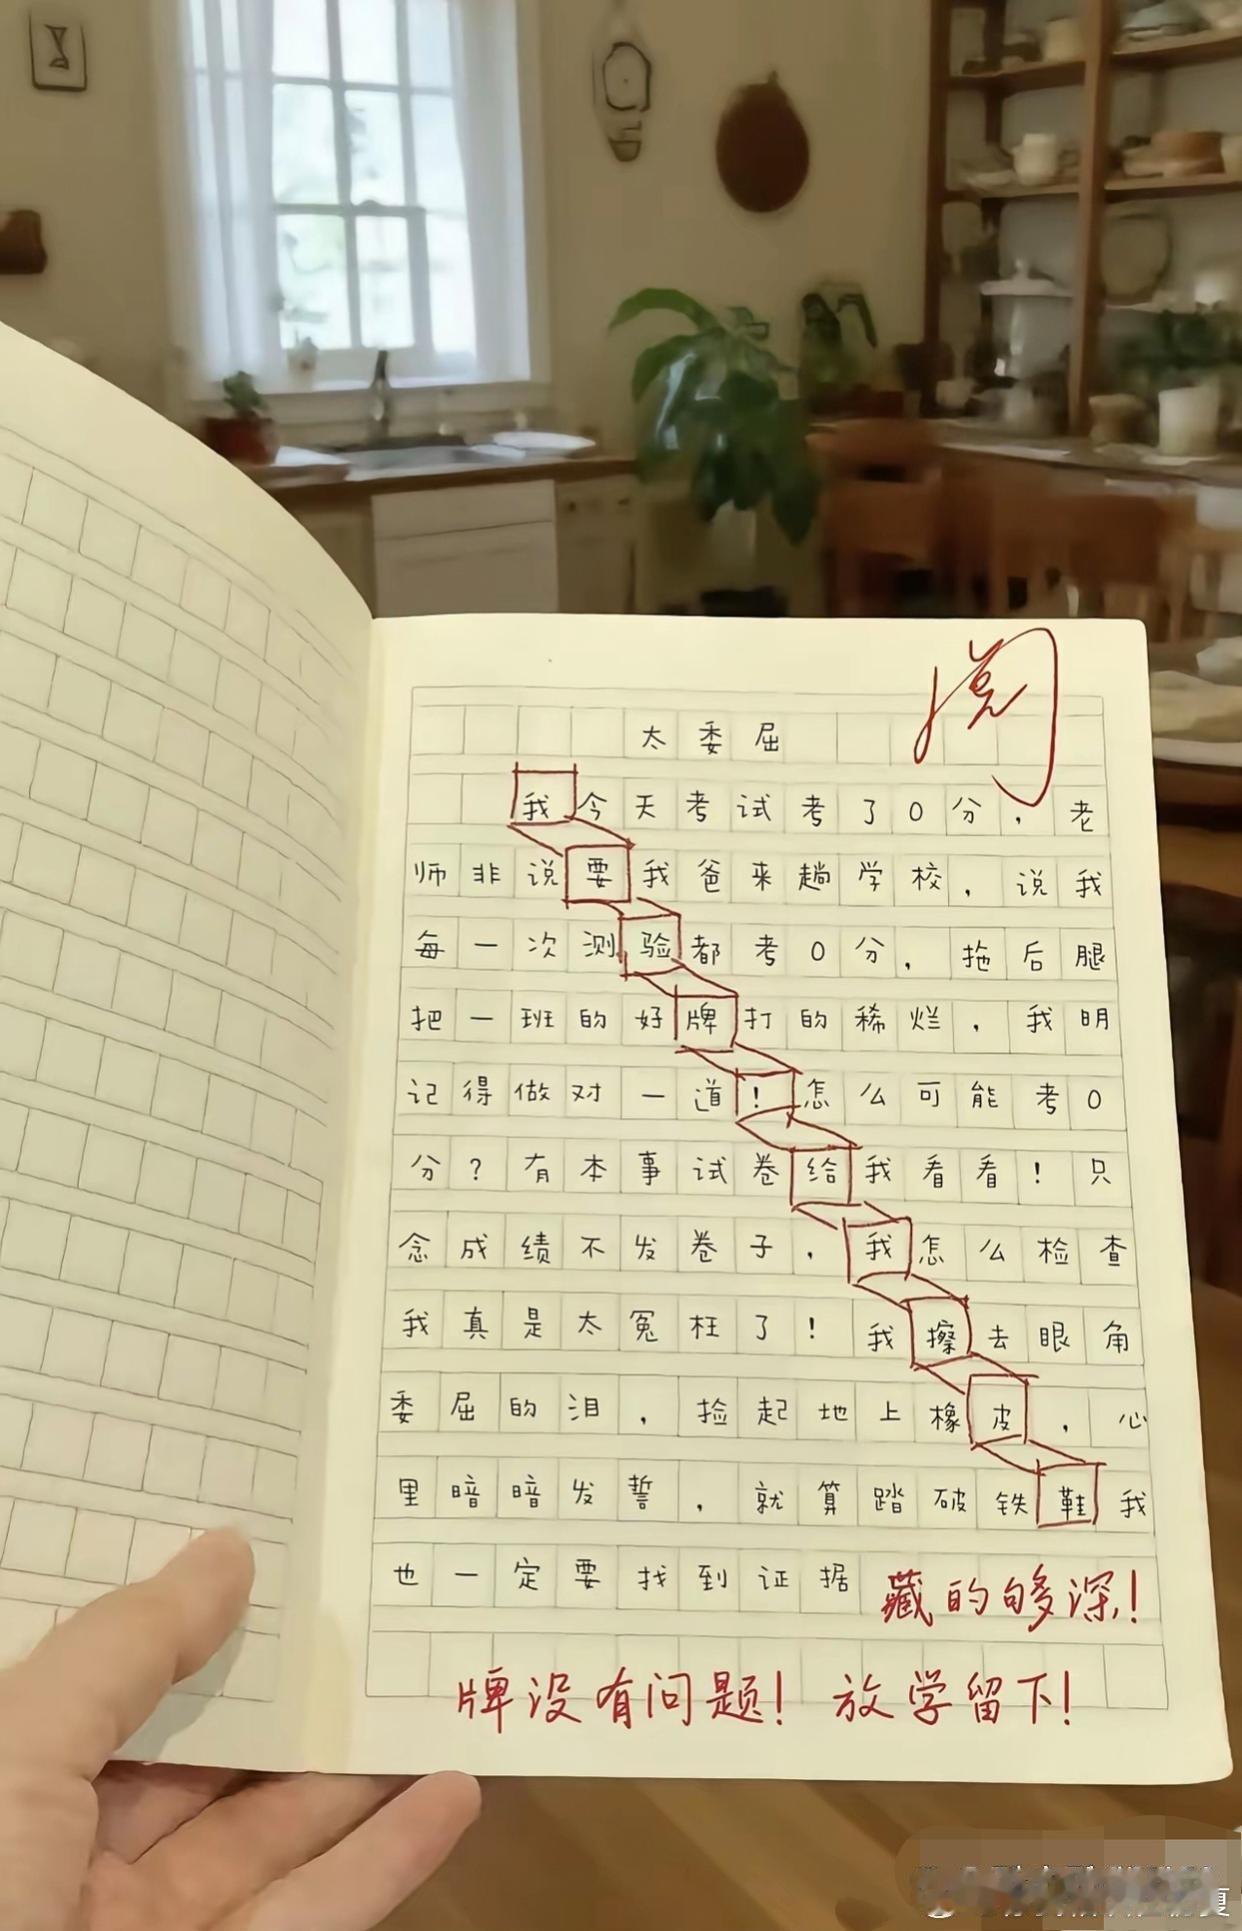 阅
太委屈
我今天考试考了0分，老
师非说要我爸来趟学校，说我
每一次测验都考0分，拖后腿
把一班的好牌打的稀烂，我明
记得做对一道！怎么可能考0
分？有本事试卷给我看看！只
念成绩不发卷子，我怎么检查
我真是太冤枉了！我擦去眼角
委屈的泪，捡起地上橡皮，心
里暗暗发誓，就算踏破铁鞋我
也一定要找到证据
藏的够深！
牌没有问题！放学留下！